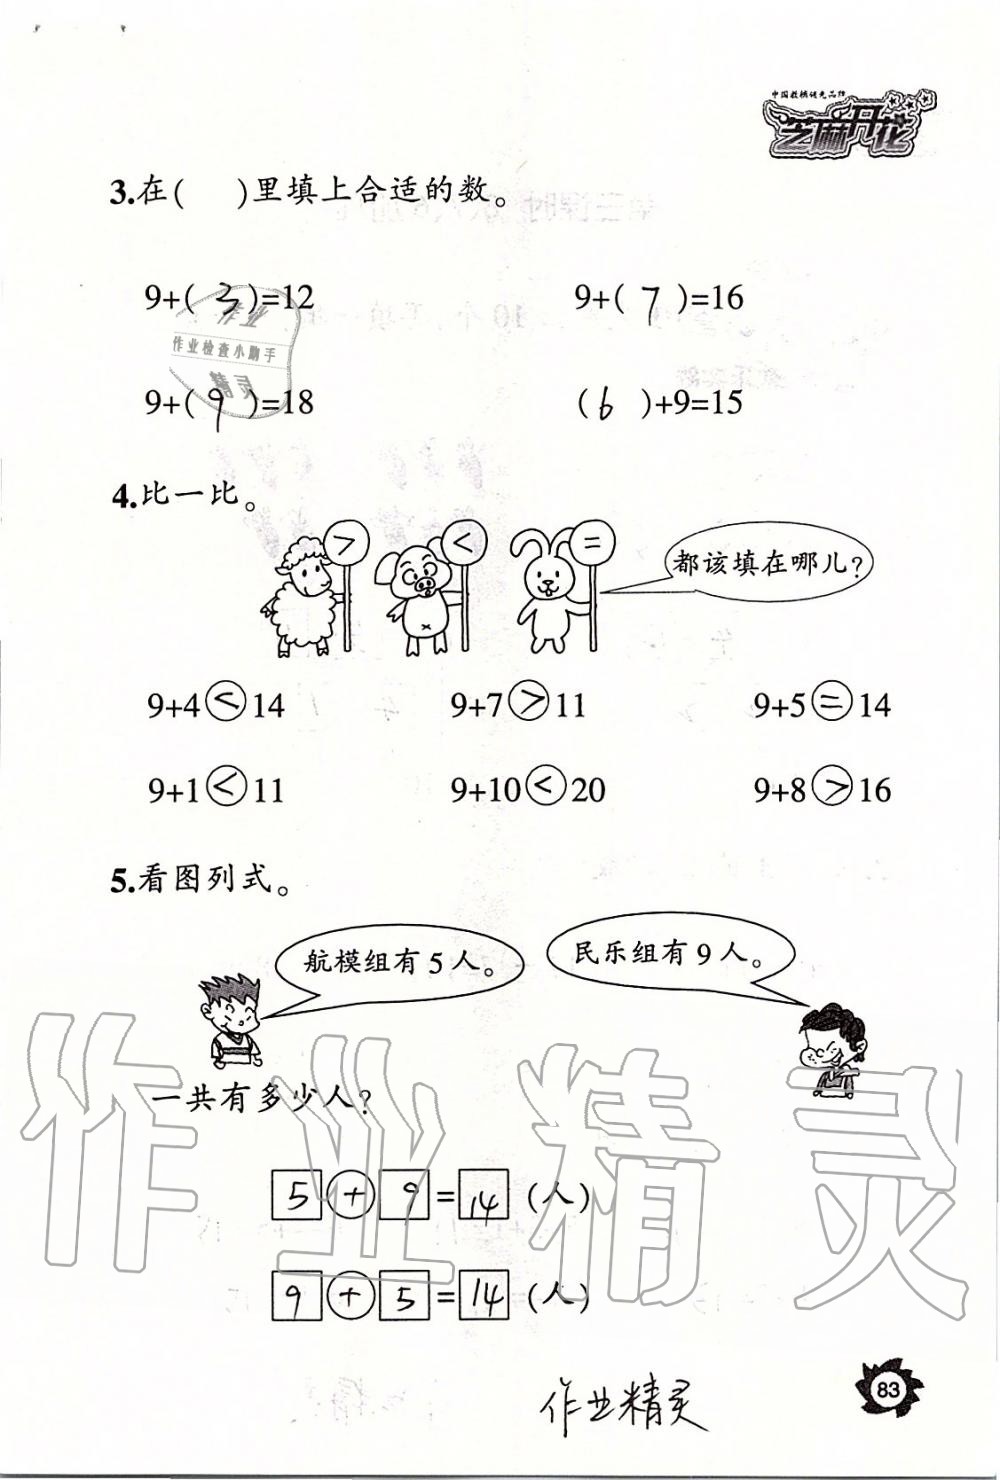 中国教辅领先品牌
芝麻开花
3.在( )里填上合适的数。
9+( 3 )=12 9+( 7 )=16
作业检查小助手
精灵
9+( 9 )=18 ( 6 )+9=15
4.比一比。
> < = 都该填在哪儿?
9+4<14 9+7>11 9+5=14
9+1<11 9+10<20 9+8>16
5.看图列式。
航模组有5人。 民乐组有9人。
一共有多少人?
作业精灵
5+9=14(人)
9+5=14(人)
作业精灵
83